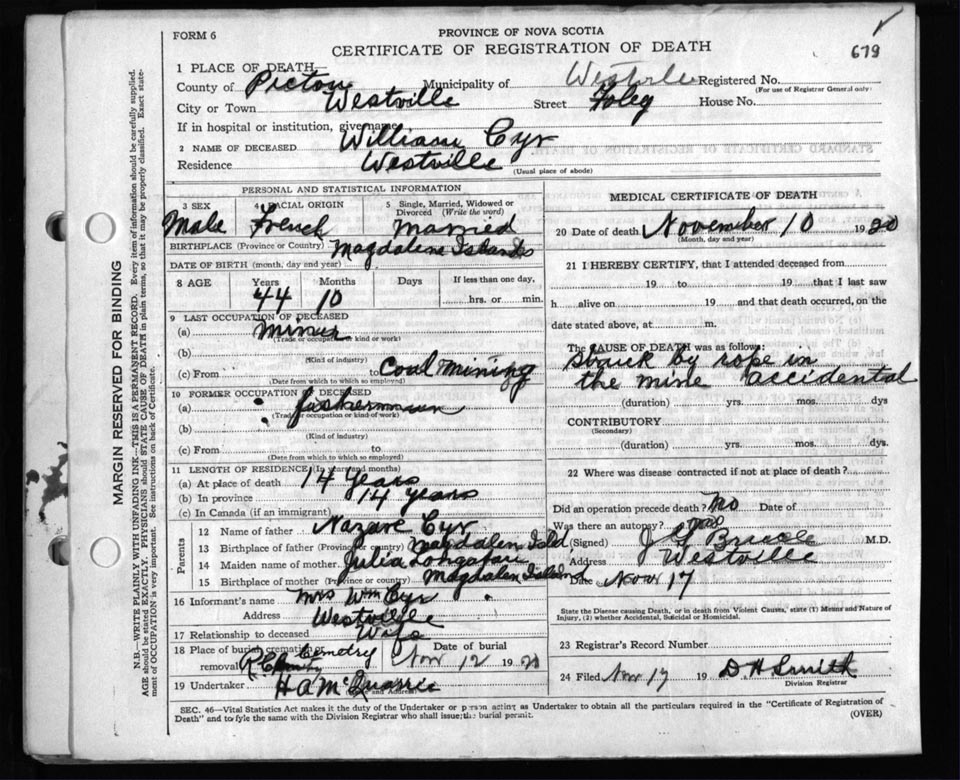 FORM 6
PROVINCE OF NOVA SCOTIA
CERTIFICATE OF REGISTRATION OF DEATH
679
1 PLACE OF DEATH—
County of Pictou Municipality of Westville Registered No.
(For use of Registrar General only)
City or Town Westville Street Foley House No.
If in hospital or institution, give name
2 NAME OF DECEASED William Cyr
Residence Westville
(Usual place of abode)
PERSONAL AND STATISTICAL INFORMATION
3 SEX Male
4 RACIAL ORIGIN French
5 Single, Married, Widowed or Divorced (Write the word) Married
BIRTHPLACE (Province or Country) Magdalene Islands
DATE OF BIRTH (month, day and year)
8 AGE Years 44 Months 10 Days If less than one day, hrs. or min.
9 LAST OCCUPATION OF DECEASED
(a) Minur
(Trade or occupation or kind of work)
(b)
(Kind of industry)
(c) From to Coal mining
(Date from which to which so employed)
10 FORMER OCCUPATION OF DECEASED
(a) fishermaun
(Trade or occupation or kind of work)
(b)
(Kind of industry)
(c) From to
(Date from which to which so employed)
11 LENGTH OF RESIDENCE (In years and months)
(a) At place of death 14 Years
(b) In province 14 years
(c) In Canada (if an immigrant)
Parents
12 Name of father Nazare Cyr
13 Birthplace of father (Province or country) Magdalen Isld
14 Maiden name of mother Julia
15 Birthplace of mother (Province or country) Magdalen Island
16 Informant's name Mrs Wm Cyr
Address Westville
17 Relationship to deceased Wife
18 Place of burial, cremation or removal R C Cemetry Date of burial Nov 12 1920
19 Undertaker H A McQuarrie
(Name and Address)
MEDICAL CERTIFICATE OF DEATH
20 Date of death November 10 1920
(Month, day and year)
21 I HEREBY CERTIFY, that I attended deceased from
19 to 19 that I last saw
h alive on 19 and that death occurred, on the
date stated above, at m.
The CAUSE OF DEATH was as follows:
struck by rope in
the mine accidental
(duration) yrs. mos. dys
CONTRIBUTORY
(Secondary)
(duration) yrs. mos. dys.
22 Where was disease contracted if not at place of death?
Did an operation precede death? No Date of
Was there an autopsy? no
(Signed) J M.D.
Address Westville
Date Nov 17
State the Disease causing Death, or in death from Violent Causes, state (1) Means and Nature of
Injury, (2) whether Accidental, Suicidal or Homicidal.
23 Registrar's Record Number
24 Filed Nov 17 19 D H Smith
Division Registrar
SEC. 46—Vital Statistics Act makes it the duty of the Undertaker or person acting as Undertaker to obtain all the particulars required in the "Certificate of Registration of
Death" and to file the same with the Division Registrar who shall issue the burial permit.
(OVER)
MARGIN RESERVED FOR BINDING
N.B.—WRITE PLAINLY WITH UNFADING INK—THIS IS A PERMANENT RECORD. Every item of information should be carefully supplied.
AGE should be stated EXACTLY. PHYSICIANS should STATE CAUSE OF DEATH in plain terms, so that it may be properly classified. Exact statement
of OCCUPATION is very important. See instructions on back of Certificate.